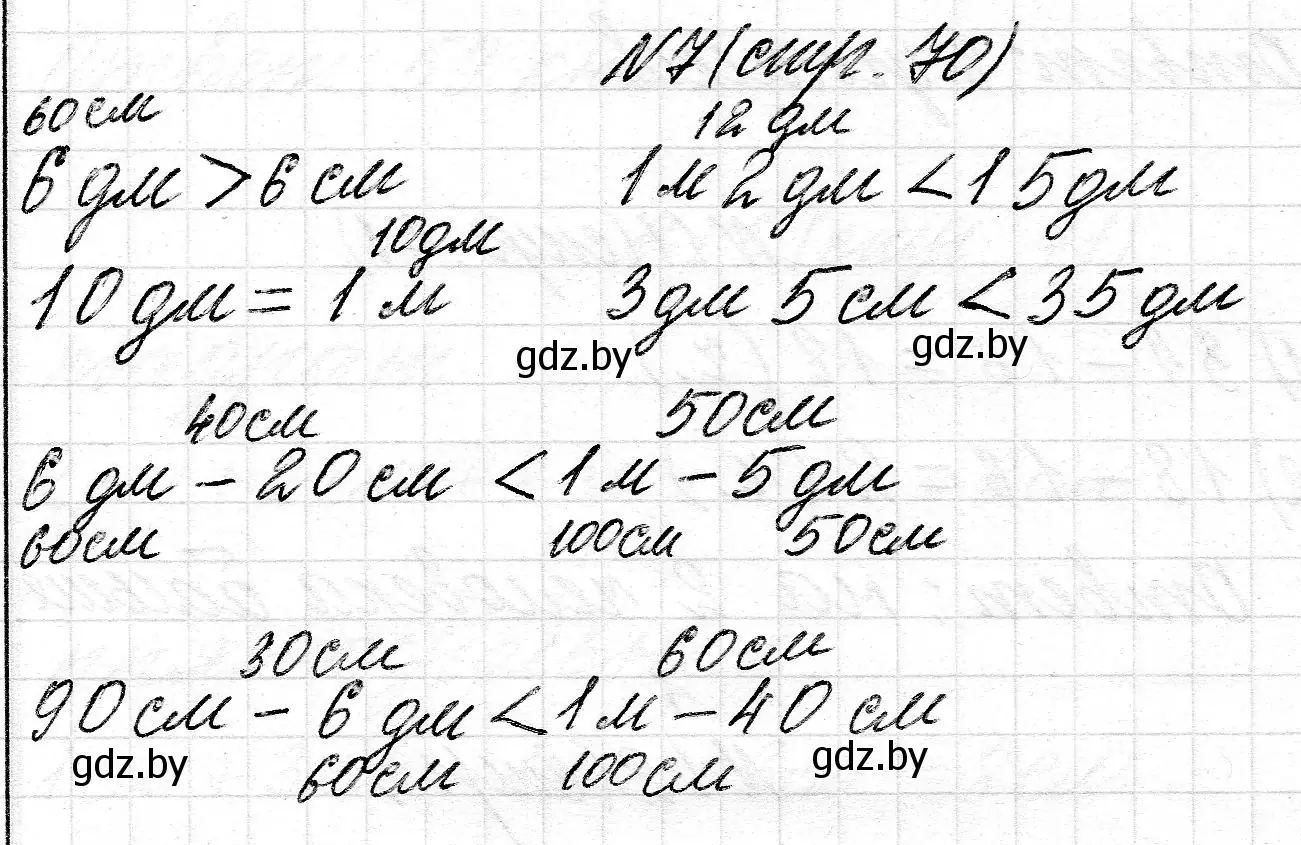 N7 (стр. 70)
60см 12 дм
6 дм > 6 см 1м 2 дм < 15 дм
10дм
10 дм = 1 м 3дм 5 см < 35 дм
gdz.by gdz.by
40см 50см
6 дм - 20 см < 1 м - 5 дм
60см 100см 50см
30см 60см
90 см - 6 дм < 1 м - 40 см
gdz.by 60см 100см gdz.by